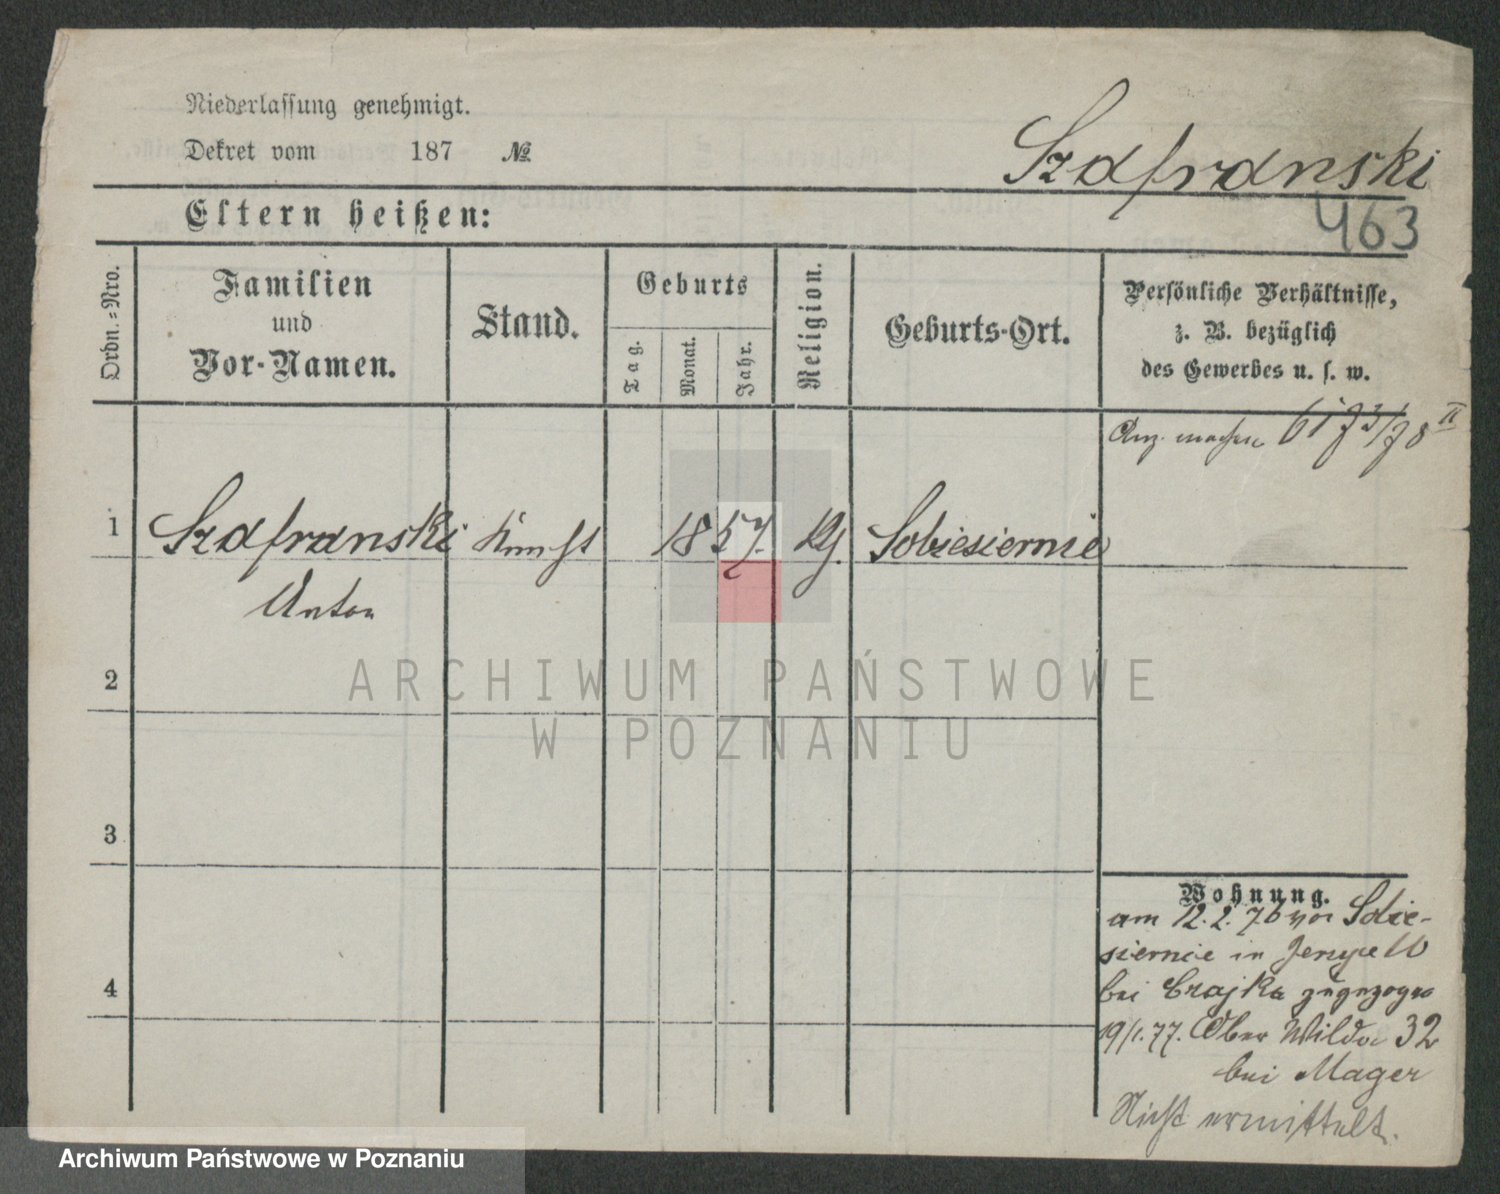 Niederlassung genehmigt.
Dekret vom 187 №
Szafranski
463
Eltern heißen:
Ordn.=Nro.
Familien
und
Vor-Namen.
Stand.
Geburts
Tag.
Monat.
Jahr.
Religion.
Geburts-Ort.
Persönliche Verhältnisse,
z. B. bezüglich
des Gewerbes u. s. w.
1 Szafranski Knecht 1857. Sobiesiernie
Anton
2
3
4
Wohnung.
am 12.2.76 von Sobie-
siernie in
bei Czajka zugezogen
19/1.77. Ober Wilda 32
bei Mager
Nicht ermittelt.
ARCHIWUM PAŃSTWOWE
W POZNANIU
Archiwum Państwowe w Poznaniu